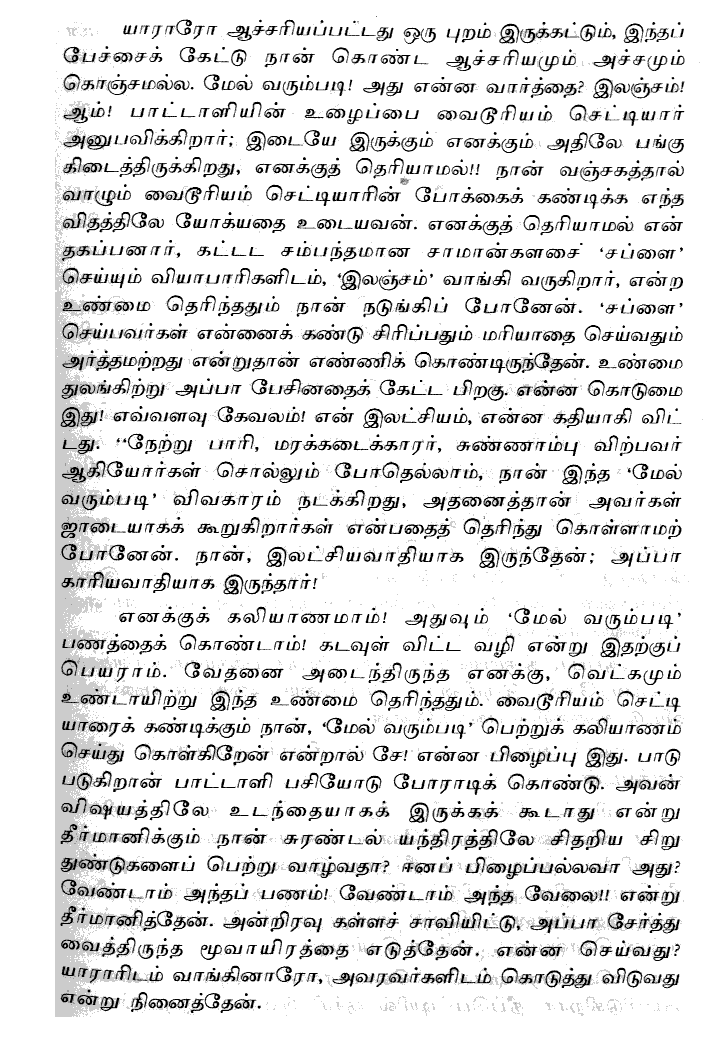 யாராரோ ஆச்சரியப்பட்டது ஒரு புறம் இருக்கட்டும், இந்தப்
பேச்சைக் கேட்டு நான் கொண்ட ஆச்சரியமும் அச்சமும்
கொஞ்சமல்ல. மேல் வரும்படி! அது என்ன வார்த்தை? இலஞ்சம்!
ஆம்! பாட்டாளியின் உழைப்பை வைடூரியம் செட்டியார்
அனுபவிக்கிறார்; இடையே இருக்கும் எனக்கும் அதிலே பங்கு
கிடைத்திருக்கிறது, எனக்குத் தெரியாமல்!! நான் வஞ்சகத்தால்
வாழும் வைடூரியம் செட்டியாரின் போக்கைக் கண்டிக்க எந்த
விதத்திலே யோக்யதை உடையவன். எனக்குத் தெரியாமல் என்
தகப்பனார், கட்டட சம்பந்தமான சாமான்களசை் ‘சப்ளை’
செய்யும் வியாபாரிகளிடம், ‘இலஞ்சம்’ வாங்கி வருகிறார், என்ற
உண்மை தெரிந்ததும் நான் நடுங்கிப் போனேன். ‘சப்ளை’
செய்பவர்கள் என்னைக் கண்டு சிரிப்பதும் மரியாதை செய்வதும்
அர்த்தமற்றது என்றுதான் எண்ணிக் கொண்டிருந்தேன். உண்மை
துலங்கிற்று அப்பா பேசினதைக் கேட்ட பிறகு. என்ன கொடுமை
இது! எவ்வளவு கேவலம்! என் இலட்சியம், என்ன கதியாகி விட்
டது. “நேற்று பாரி, மரக்கடைக்காரர், சுண்ணாம்பு விற்பவர்
ஆகியோர்கள் சொல்லும் போதெல்லாம், நான் இந்த ‘மேல்
வரும்படி’ விவகாரம் நடக்கிறது, அதனைத்தான் அவர்கள்
ஜாடையாகக் கூறுகிறார்கள் என்பதைத் தெரிந்து கொள்ளாமற்
போனேன். நான், இலட்சியவாதியாக இருந்தேன்; அப்பா
காரியவாதியாக இருந்தார்!
எனக்குக் கலியாணமாம்! அதுவும் ‘மேல் வரும்படி’
பணத்தைக் கொண்டாம்! கடவுள் விட்ட வழி என்று இதற்குப்
பெயராம். வேதனை அடைந்திருந்த எனக்கு, வெட்கமும்
உண்டாயிற்று இந்த உண்மை தெரிந்ததும். வைடூரியம் செட்டி
யாரைக் கண்டிக்கும் நான், ‘மேல் வரும்படி’ பெற்றுக் கலியாணம்
செய்து கொள்கிறேன் என்றால் சே! என்ன பிழைப்பு இது. பாடு
படுகிறான் பாட்டாளி பசியோடு போராடிக் கொண்டு. அவன்
விஷயத்திலே உடந்தையாகக் இருக்கக் கூடாது என்று
தீர்மானிக்கும் நான் சுரண்டல் யந்திரத்திலே சிதறிய சிறு
துண்டுகளைப் பெற்று வாழ்வதா? ஈனப் பிழைப்பல்லவா அது?
வேண்டாம் அந்தப் பணம்! வேண்டாம் அந்த வேலை!! என்று
தீர்மானித்தேன். அன்றிரவு கள்ளச் சாவியிட்டு, அப்பா சேர்த்து
வைத்திருந்த மூவாயிரத்தை எடுத்தேன். என்ன செய்வது?
யாராரிடம் வாங்கினாரோ, அவரவர்களிடம் கொடுத்து விடுவது
என்று நினைத்தேன்.